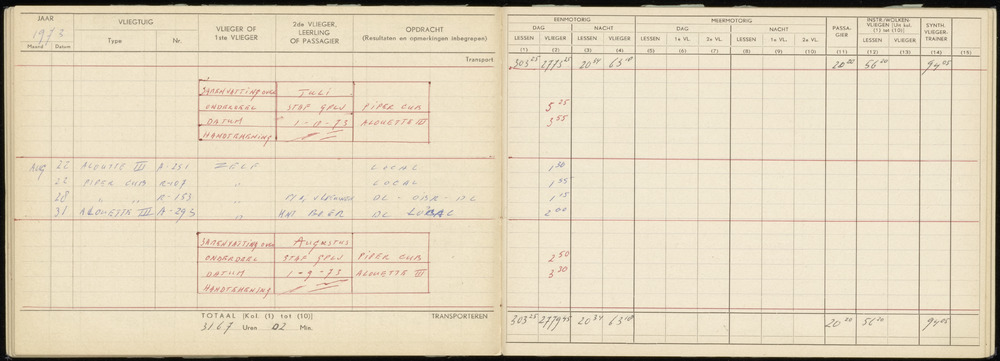 JAAR
1973
Maand Datum
VLIEGTUIG
Type Nr.
VLIEGER OF
1ste VLIEGER
2de VLIEGER,
LEERLING
OF PASSAGIER
OPDRACHT
(Resultaten en opmerkingen inbegrepen)
Transport
SAMENVATTING over JULI
ONDERDEEL STAF GPLV PIPER CUB
DATUM ALOUETTE III
HANDTEKENING
AUG 22 ALOUTTE III A-251 ZELF LOCAL
22 PIPER CUB R-107 " LOCAL
28 " " R-153 " DL - DL
31 ALOUETTE III A-293 " DL LOCAL
SAMENVATTING over AUGUSTUS
ONDERDEEL STAF GPLV PIPER CUB
DATUM 1-9-73 ALOUETTE III
HANDTEKENING
TOTAAL (Kol. (1) tot (10)) TRANSPORTEREN
3167 Uren 02 Min.
EENMOTORIG MEERMOTORIG PASSA-
GIER
INSTR./WOLKEN-
VLIEGEN (Un kol.
(1) tot (10))
SYNTH.
VLIEGER-
TRAINER
DAG NACHT DAG NACHT
LESSEN VLIEGER LESSEN VLIEGER LESSEN 1e VL. 2e VL. LESSEN 1e VL. 2e VL. LESSEN VLIEGER
(1) (2) (3) (4) (5) (6) (7) (8) (9) (10) (11) (12) (13) (14) (15)
303 25 20 34 63 18 20 20 56 20 94 05
5 25
3 55
1 30
1 55
1 15
2 00
2 50
3 30
303 25 2779 45 20 34 63 18 20 20 56 20 94 05